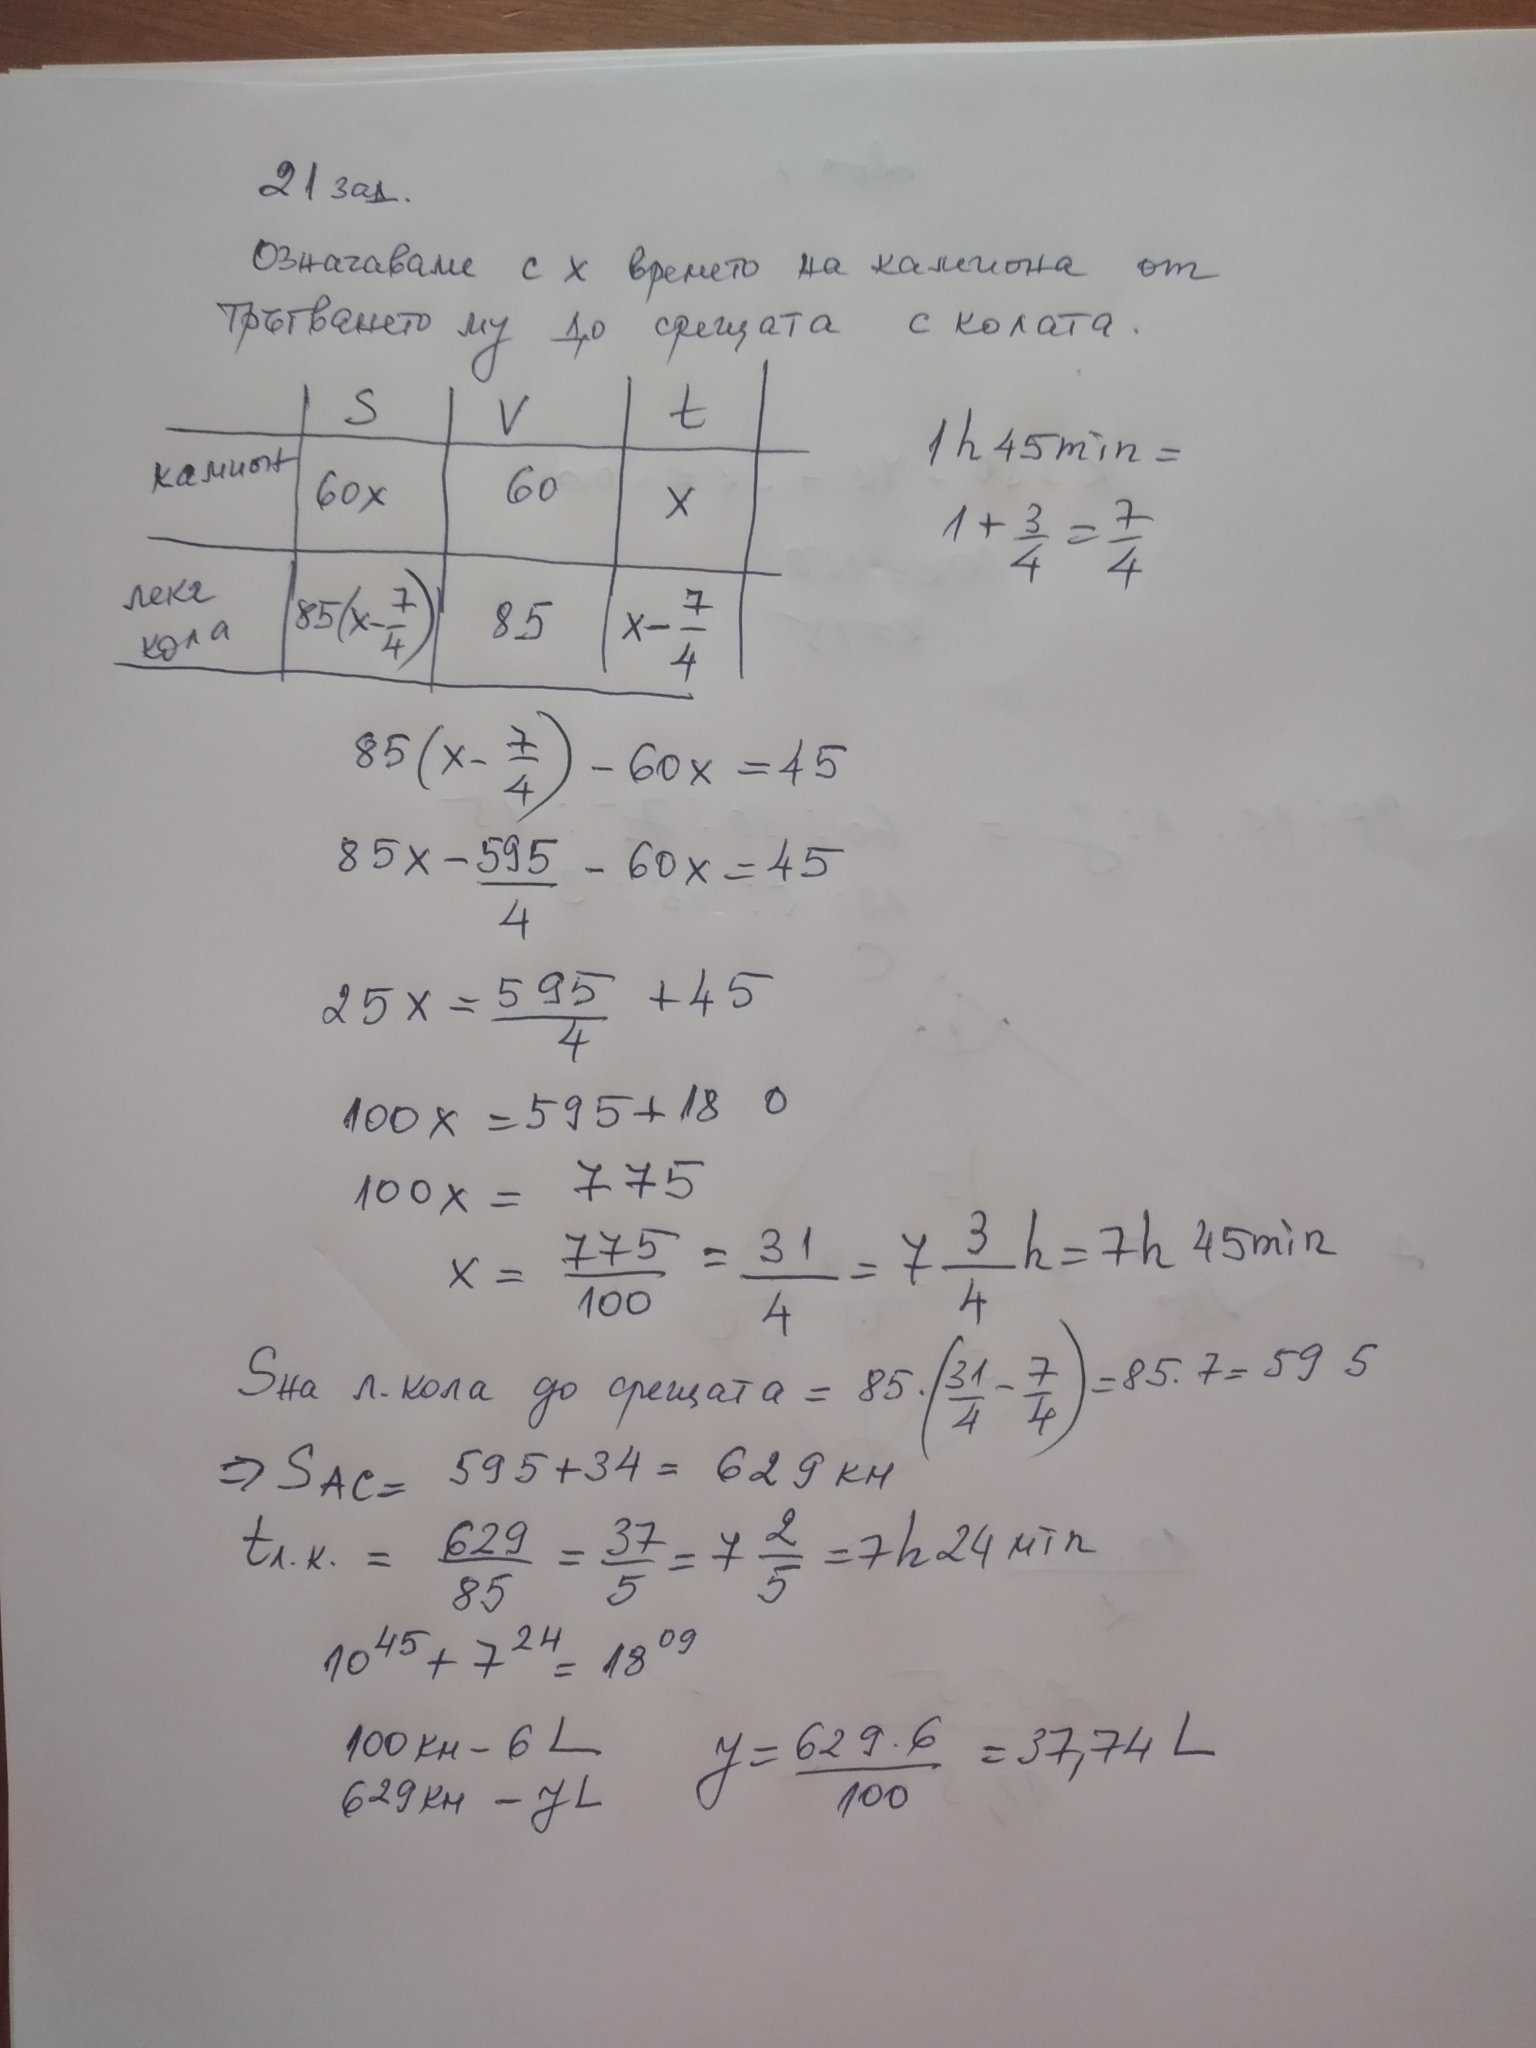 21 зад.
Означаваме с x времето на камиона от
тръгването му до срещата с колата.
S V t
камион 60x 60 x
лека кола 85(x-7/4) 85 x-7/4
1h 45min =
1+3/4=7/4
85(x-7/4)-60x=45
85x-595/4-60x=45
25x=595/4+45
100x=595+180
100x=775
x=775/100=31/4=7 3/4 h=7h 45min
Sна л.кола до срещата = 85.(31/4-7/4)=85.7=595
⇒ SAC= 595+34= 629 км
tл.к. = 629/85=37/5=7 2/5=7h 24 min
10^45+7^24=18^09
100км-6 L
629км-yL
y=629.6/100=37,74 L